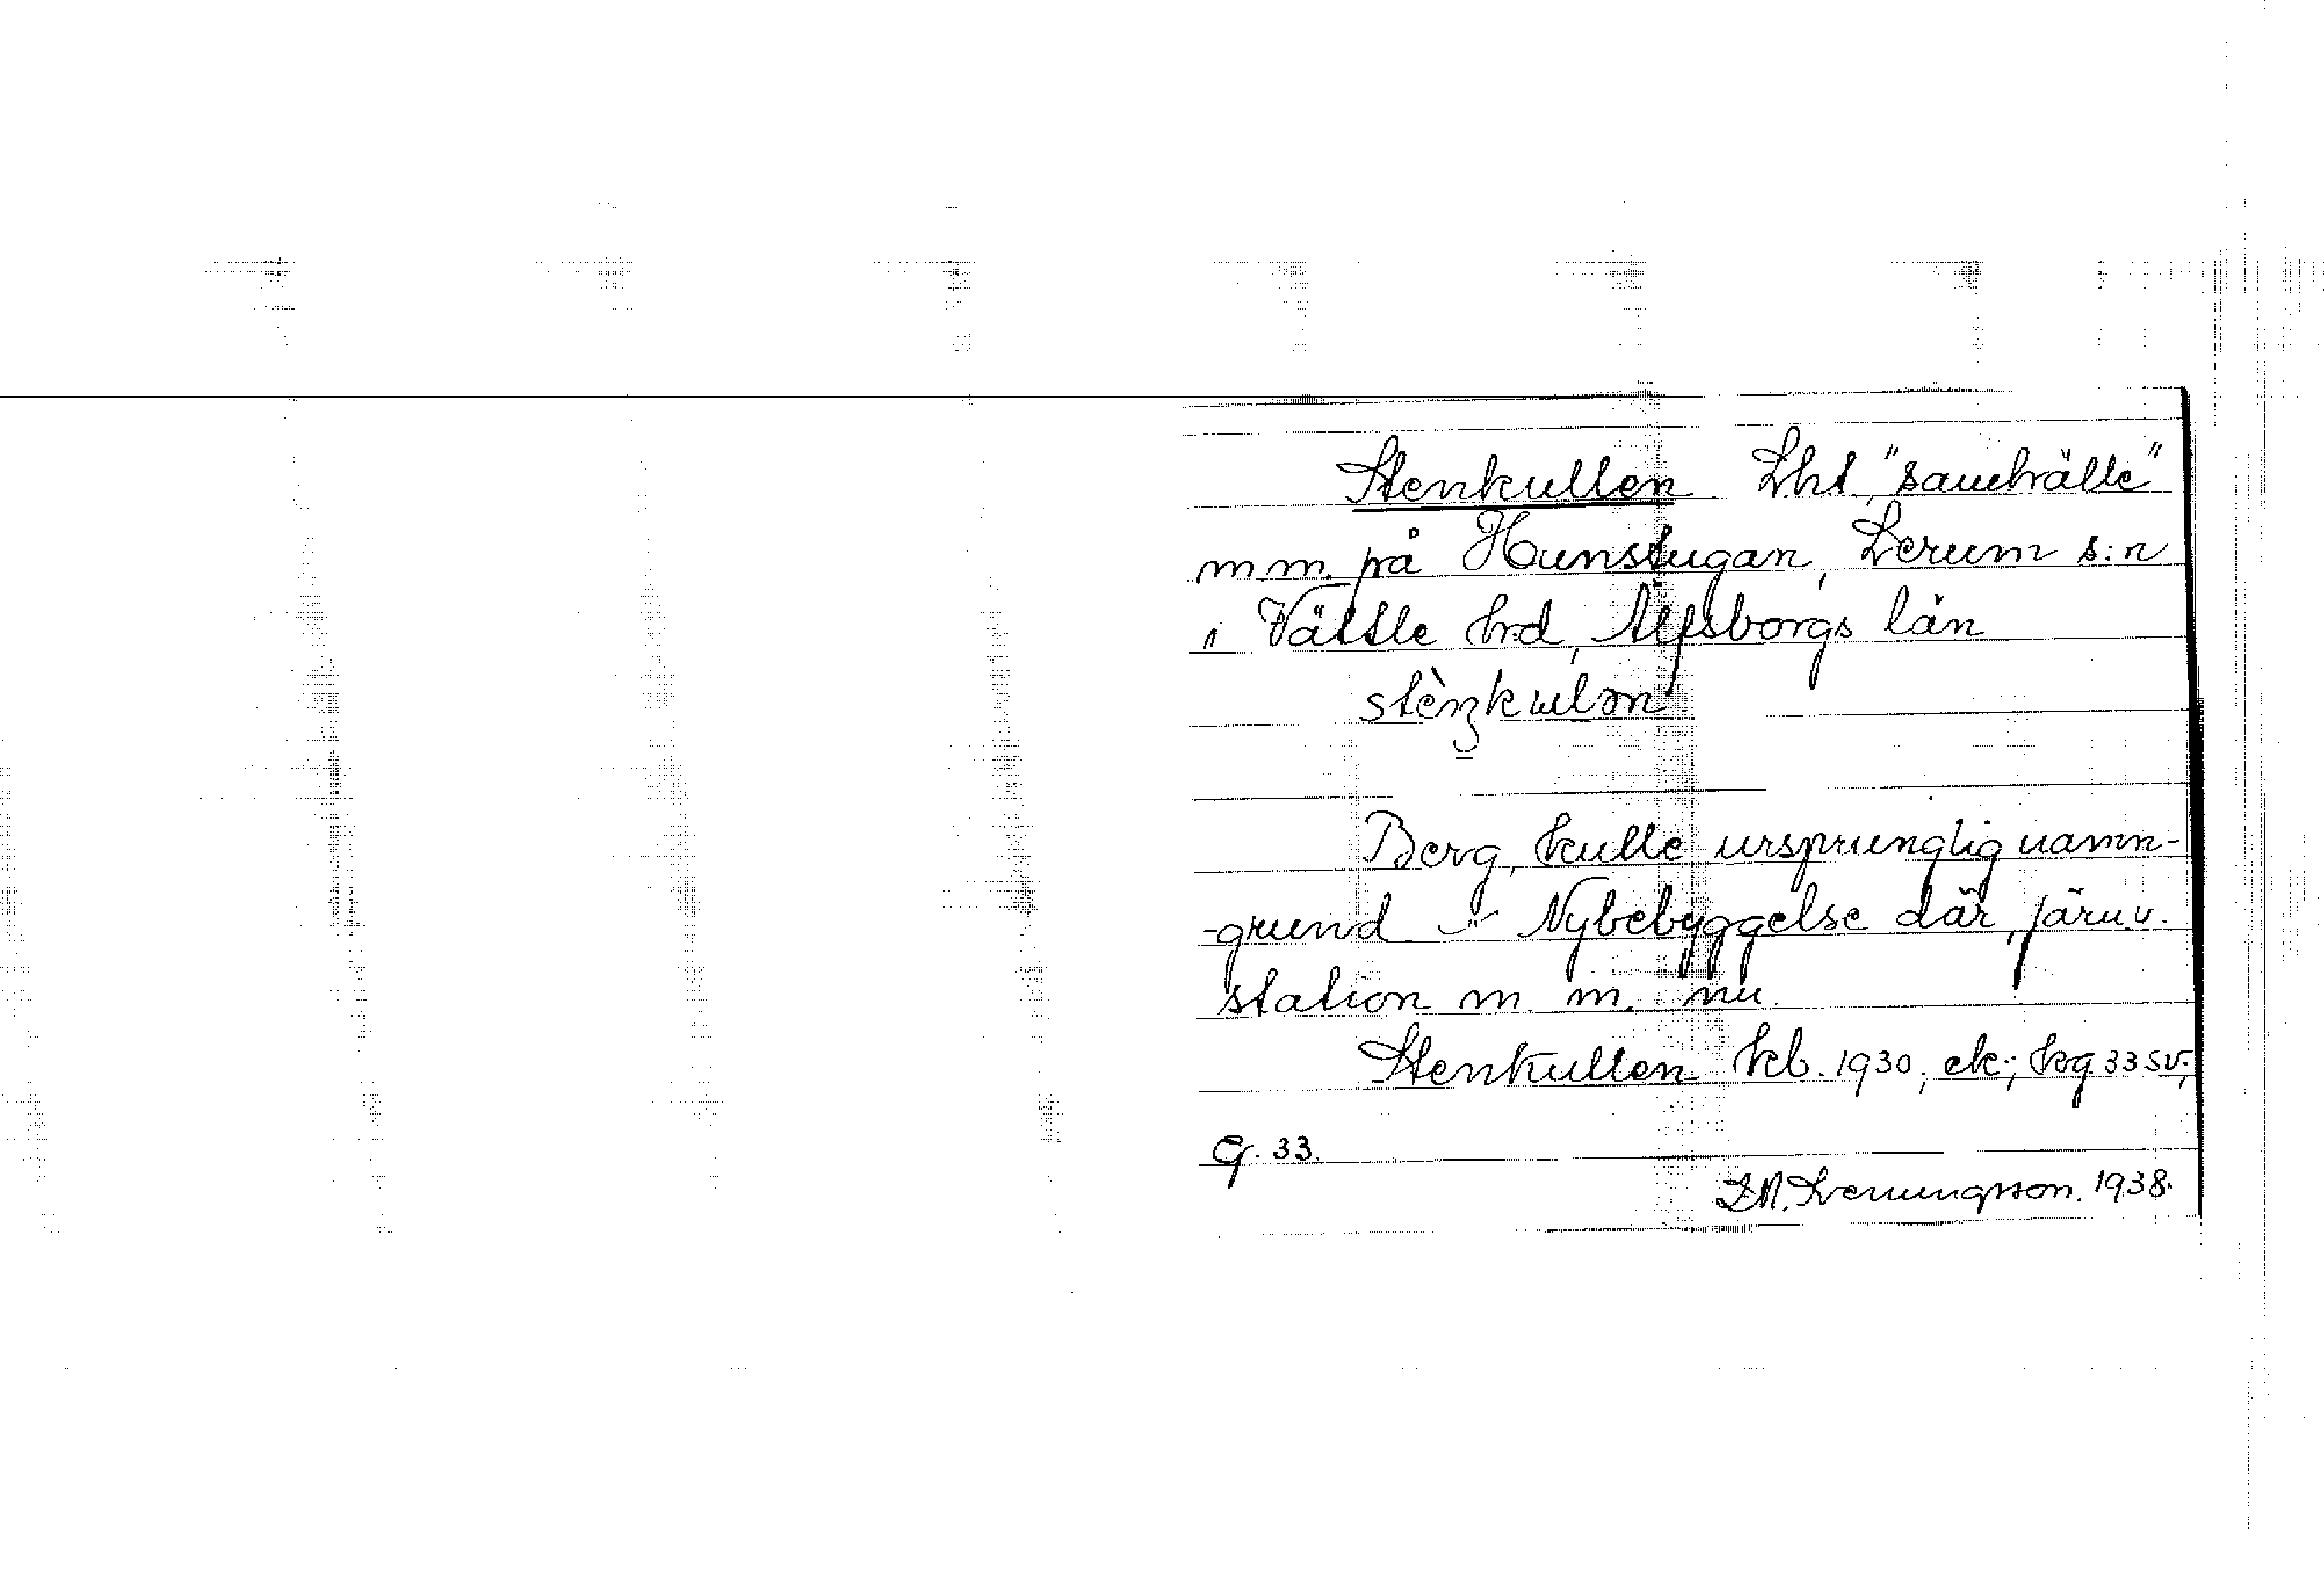 Stenkullen. Lht, "samhälle"
m.m. på Hunstugan, Lerum s:n
i Vättle hd, Älfsborgs län
stèŋkulən
Berg, kulle ursprunglig namn-
-grund. Nybebyggelse där, järnv.
station m. m. nu.
Stenkullen kb. 1930; ek; kg 33 SV;
G. 33.
1938.